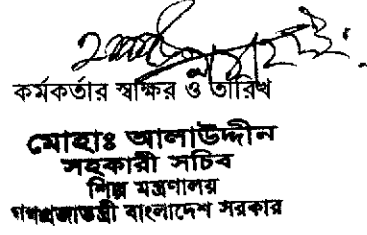 কর্মকর্তার স্বাক্ষর ও তারিখ
মোহাঃ আলাউদ্দীন
সহকারী সচিব
শিল্প মন্ত্রণালয়
গণপ্রজাতন্ত্রী বাংলাদেশ সরকার